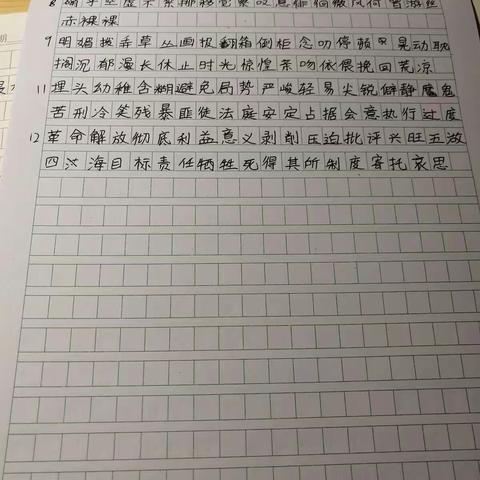 8 空虚不禁挪移觉察叹息徘徊微风何曾游丝
赤裸裸
9 明媚拨弄草丛画报翻箱倒柜念叨停顿晃动耽
搁沉郁漫长休止时光惊惶亲吻依偎挽回荒凉
11 埋头幼稚含糊避免局势严峻轻易尖锐僻静魔鬼
苦刑冷笑残暴匪徒法庭安定占据会意执行过度
12 革命解放彻底利益意义剥削压迫批评兴旺五湖
四海目标责任牺牲死得其所制度寄托哀思